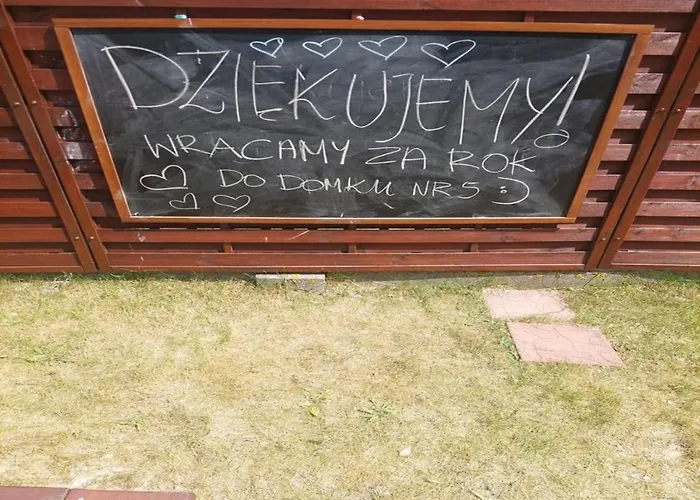 DZIĘKUJEMY!
WRACAMY ZA ROK
DO DOMKU NR 5 :)